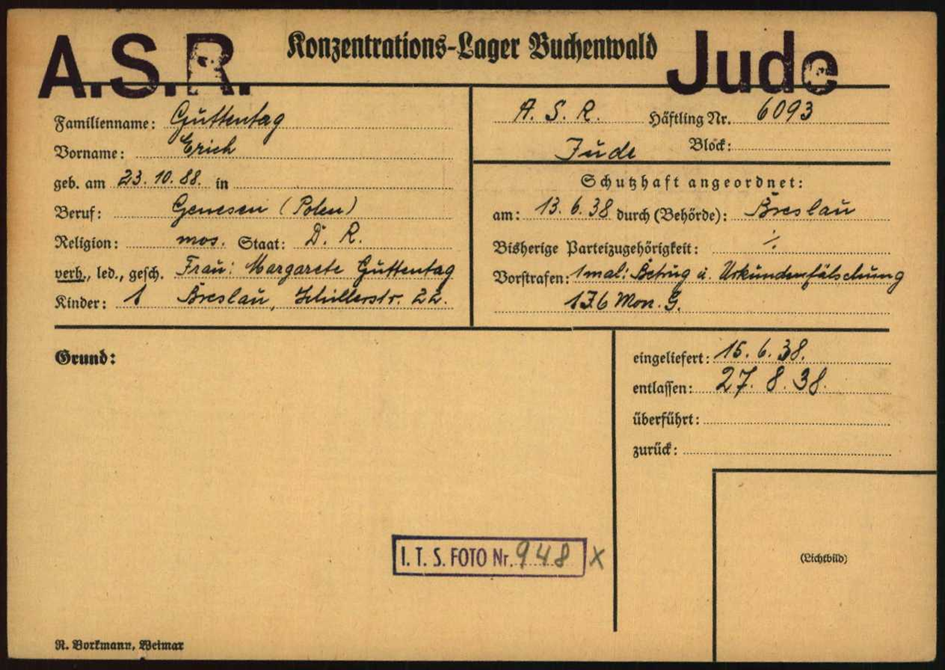 A.S.R.
Konzentrations-Lager Buchenwald
Jude
Familienname: Guttentag
Vorname: Erich
geb. am 23.10.88. in
Beruf: Gnesen (Polen)
Religion: mos. Staat: D. R.
verh., led., gesch. Frau: Margarete Guttentag
Kinder: 1 Breslau, Schillerstr. 22.
A. S. R. Häftling Nr. 6093
Jude Block:
Schutzhaft angeordnet:
am: 13.6.38 durch (Behörde): Breslau
Bisherige Parteizugehörigkeit: ./.
Vorstrafen: 1mal: Betrug u. Urkundenfälschung
6 Mon. G.
Grund:
eingeliefert: 15.6.38.
entlassen: 27.8.38.
überführt:
zurück:
(Lichtbild)
I. T. S. FOTO Nr. 948 X
R. Borkmann, Weimar